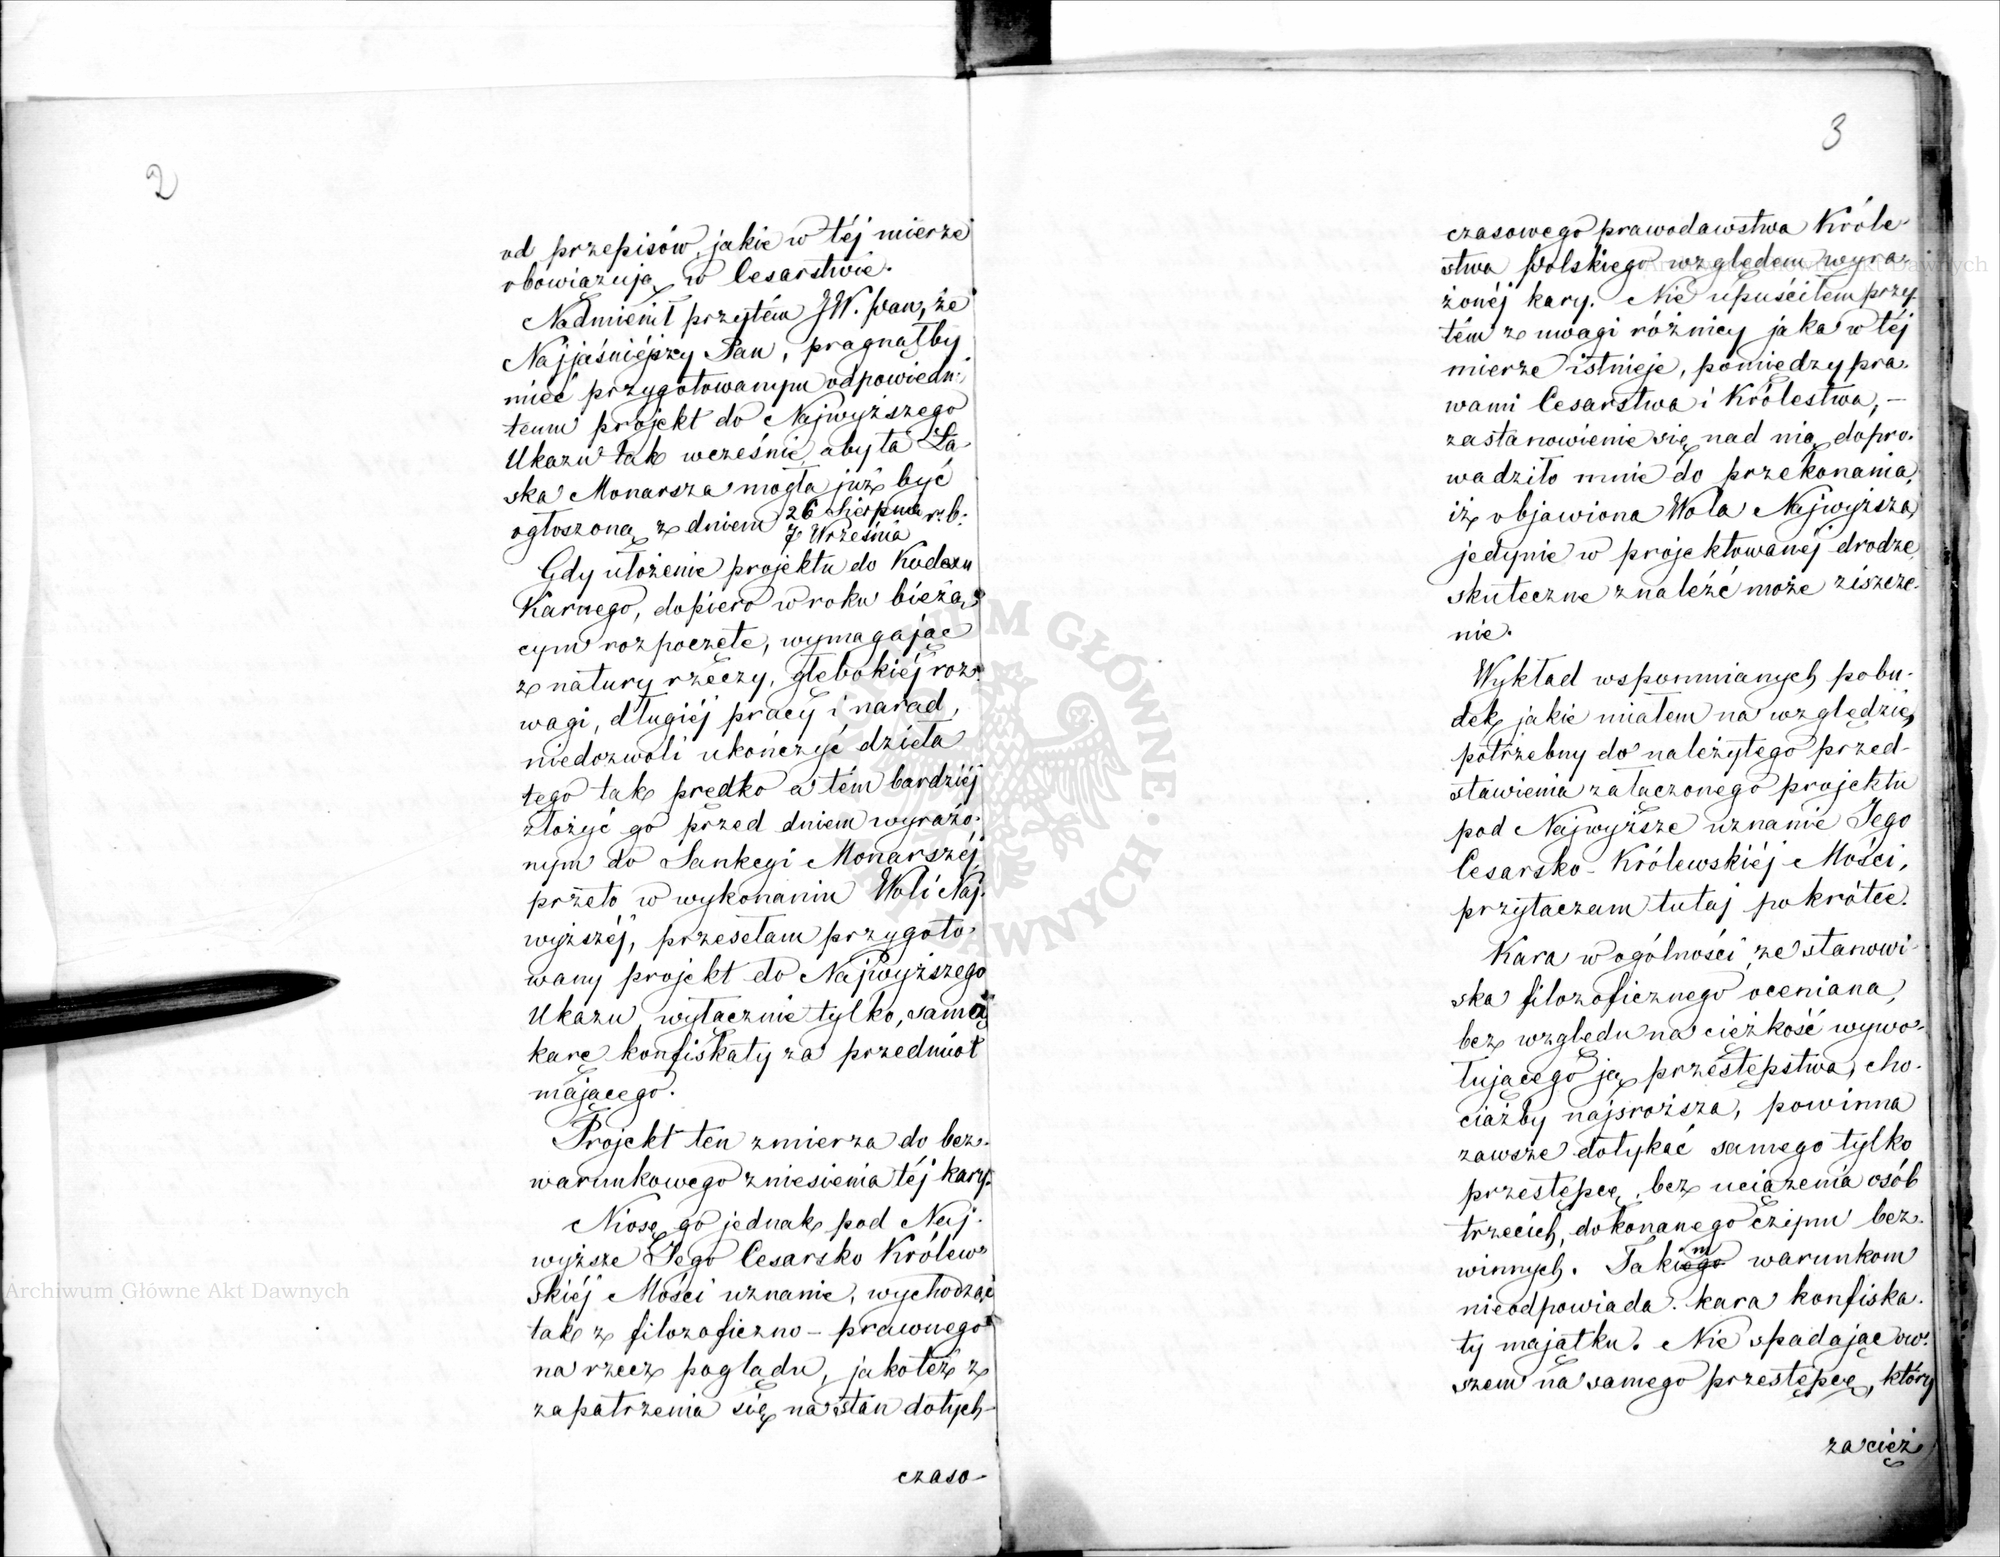 2
od przepisów, jakie w téj mierze
obowiązują w Cesarstwie.
Nadmienił przytém JW. Pan, że
Najjaśniéjszy Pan, pragnąłby
mieć przygotowanym odpowiedni
temu projekt do Najwyższego
Ukazu tak wcześnie, aby ta Ła-
ska Monarsza mogła już być
ogłoszoną z dniem 26 Sierpnia r. b.
7 Września
Gdy ułożenie projektu do Kodexu
Karnego, dopiero w roku bieżą-
cym rozpoczęte, wymagając
z natury rzeczy, głębokiéj roz-
wagi, długiéj pracy i narad,
niedozwoli ukończyć dzieła
tego tak prędko a tém bardziéj
złożyć go przed dniem wyrażo-
nym do Sankcyi Monarszéj
przeto w wykonaniu Woli Naj-
wyższéj, przesełam przygoto-
wany projekt do Najwyższego
Ukazu, wyłącznie tylko, samą
karę konfiskaty za przedmiot
mającego.
Projekt ten zmierza do bez-
warunkowego zniesienia téj kary.
Niosę go jednak pod Naj-
wyższe Jego Cesarsko Królew-
skiéj Mości uznanie, wychodząc
tak z filozoficzno-prawnego
na rzecz poglądu, jakotéż z
zapatrzenia się na stan dotych-
czaso-
3
czasowego prawodawstwa Króle-
stwa Polskiego względem wyra-
żonéj kary. Nie upuściłem przy-
tém z uwagi różnicy jaka w téj
mierze istnieje, pomiędzy pra-
wami Cesarstwa i Królestwa, –
zastanowienie się nad nią dopro-
wadziło mnie do przekonania,
iż objawiona Wola Najwyższa,
jedynie w projektowanéj drodze
skuteczne znaleźć może ziszcze-
nie.
Wykład wspomnianych pobu-
dek, jakie miałem na względzie,
potrzebny do należytego przed-
stawienia załączonego projektu
pod Najwyższe uznanie Jego
Cesarsko-Królewskiéj Mości,
przytaczam tutaj pokrótce.
Kara w ogólności, ze stanowi-
ska filozoficznego oceniana,
bez względu na ciężkość wywo-
łującego ją przestępstwa, cho-
ciażby najsroższa, powinna
zawsze dotykać samego tylko
przestępcę, bez uciążenia osób
trzecich, dokonanego czynu bez-
winnych. Takiego m warunkom
nieodpowiada kara konfiska-
ty majątku. Nie spadając ow-
szem na samego przestępcę, który
za cięż
Archiwum Główne Akt Dawnych
Archiwum Główne Akt Dawnych
ARCHIWUM GŁÓWNE AKT DAWNYCH